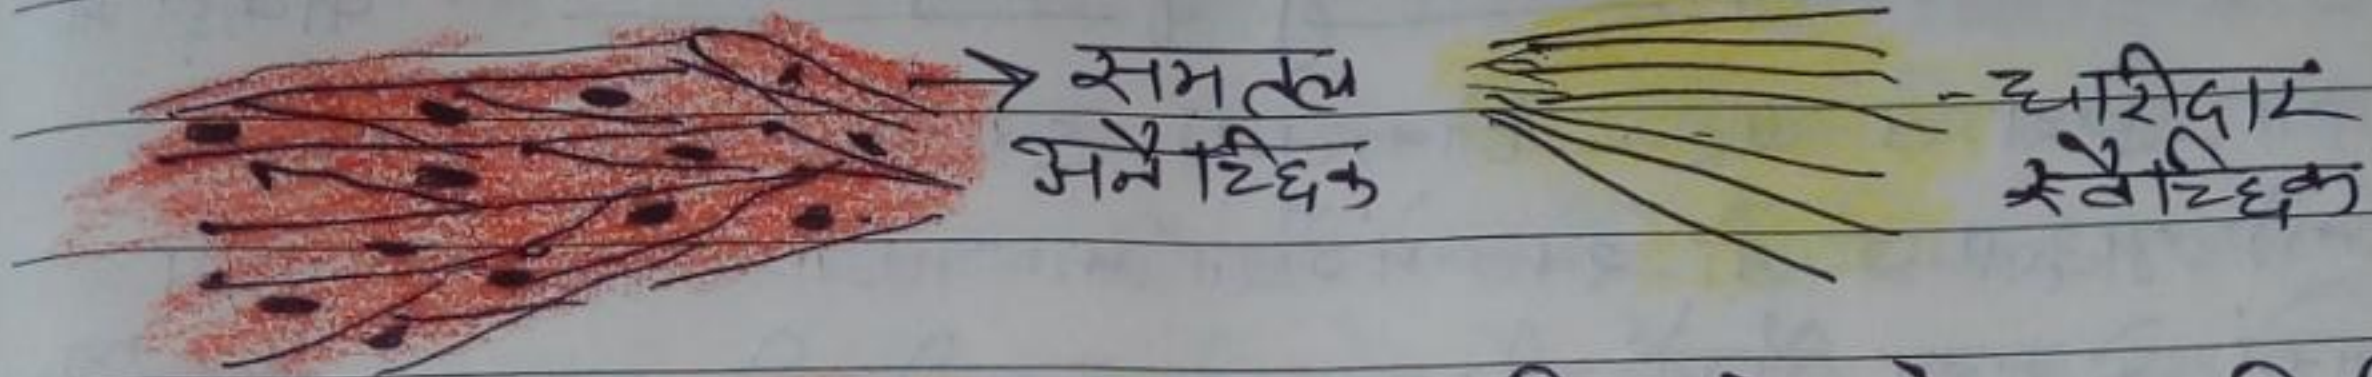 समतल
अनैच्छिक
धारीदार
स्वैच्छिक